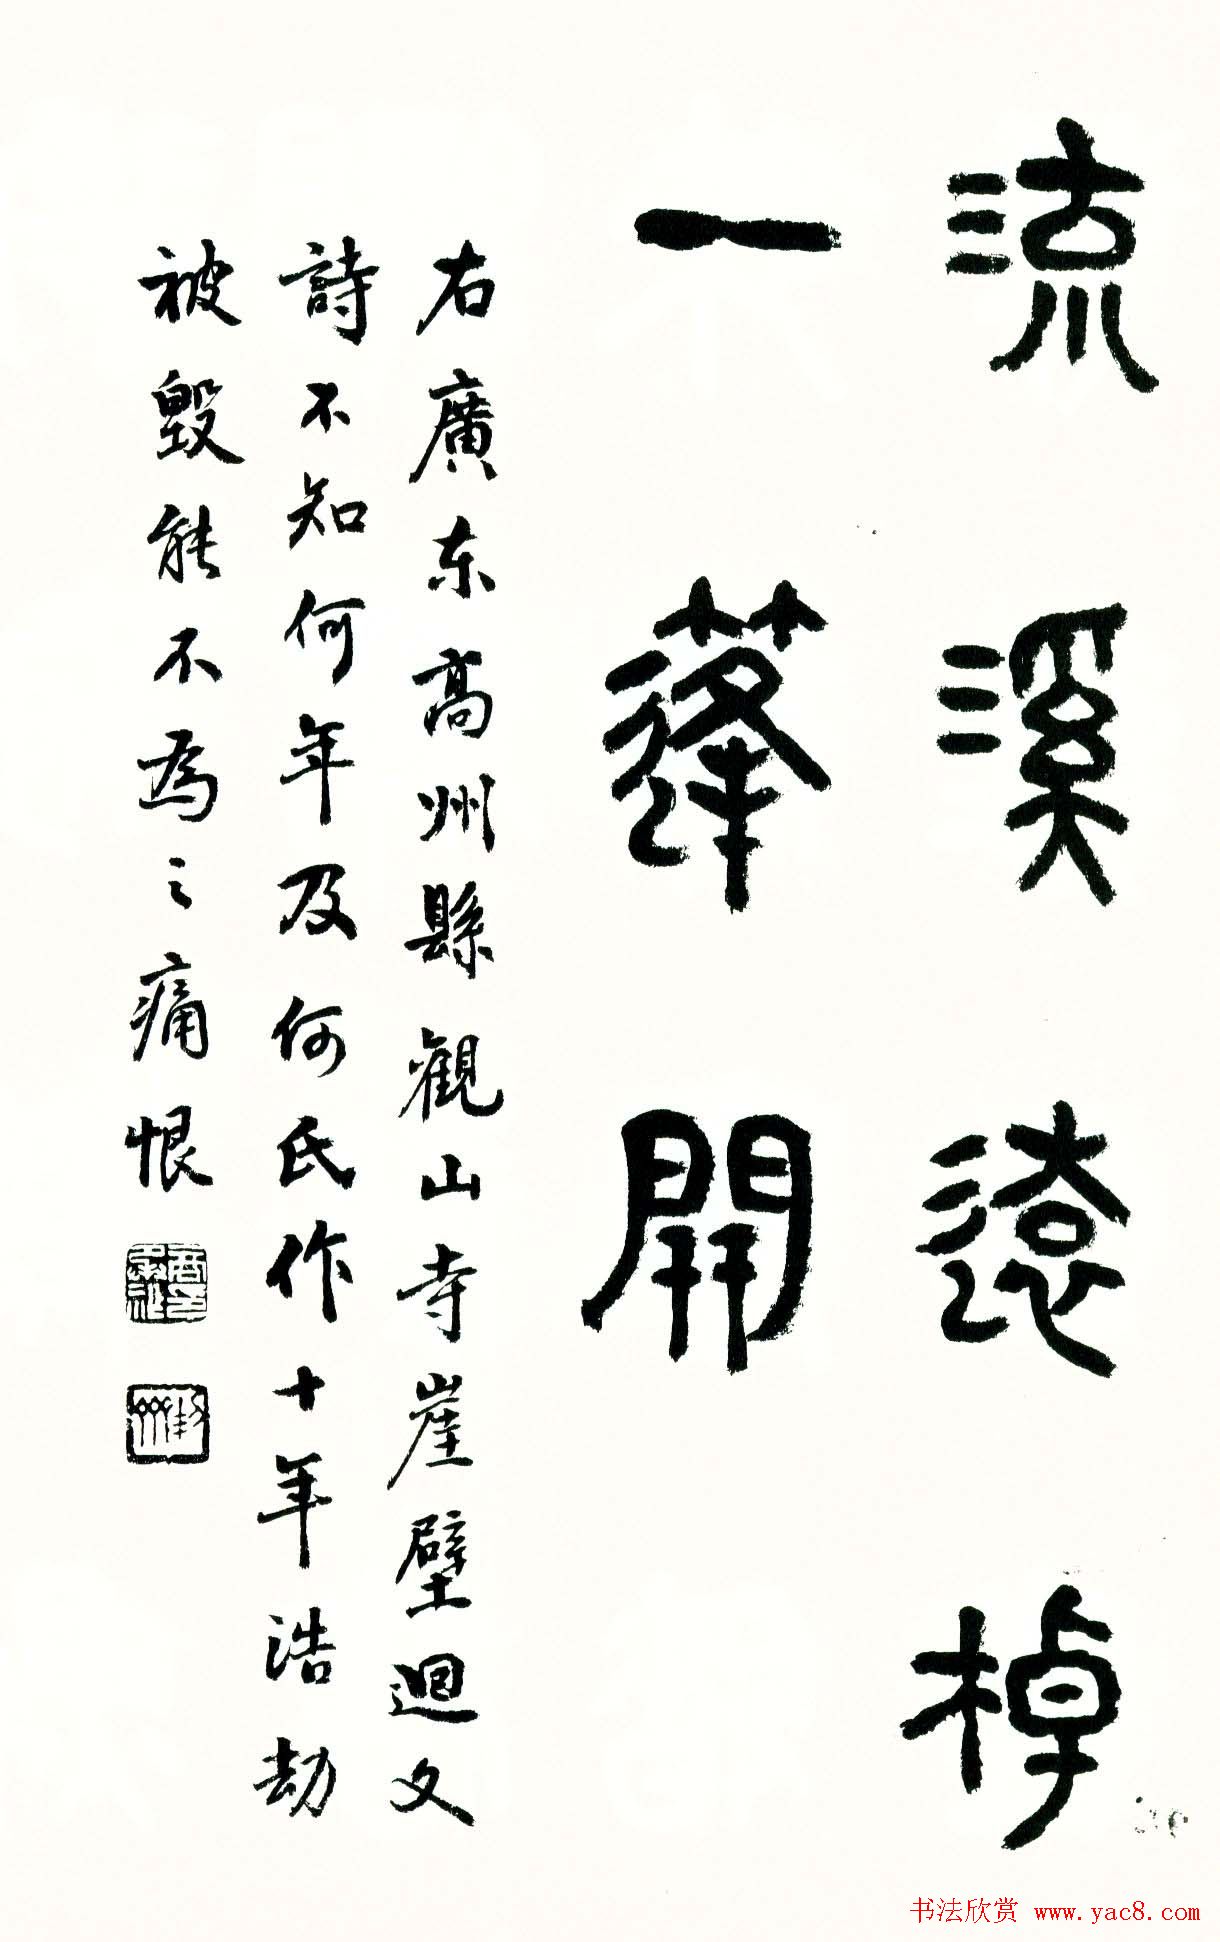 流溪遠棹
一蓬開
右廣东高州縣觀山寺崖壁迴文
詩不知何年及何氏作十年浩劫
被毁能不為之痛恨
书法欣赏 www.yac8.com